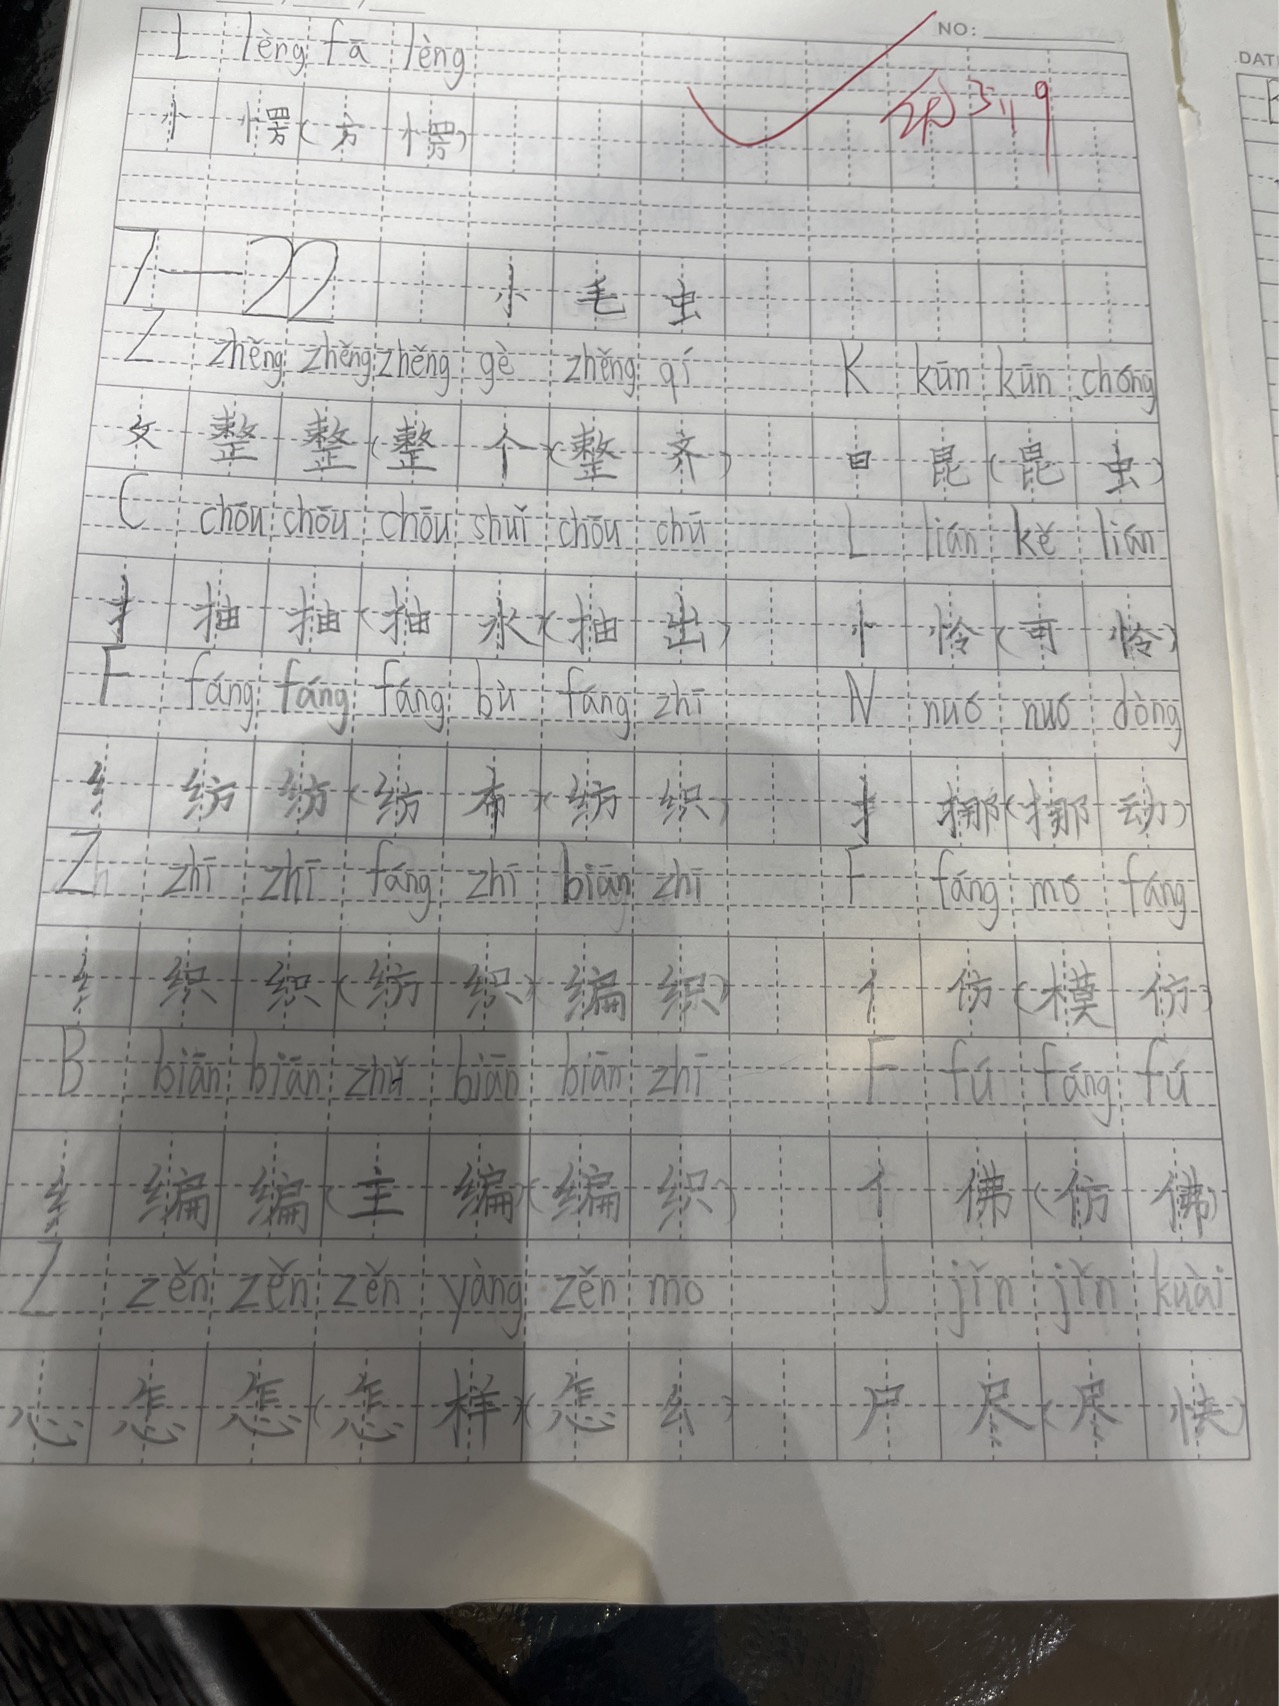 NO:
L lèng fā lèng
DAT
忄 愣(方 愣)
7—22 小毛虫
Z zhěng zhěng zhěng gè zhěng qí K kūn kūn chóng
攵 整 整(整 个)(整 齐) 日 昆(昆 虫)
C chōu chōu chōu shuǐ chōu chū L lián kě lián
扌 抽 抽(抽 水)(抽 出) 忄 怜(可 怜)
F fáng fáng fáng bù fáng zhī N nuó nuó dòng
纟 纺 纺(纺 布)(纺 织) 扌 挪(挪 动)
Z zhī zhī fáng zhī biān zhī F fáng mó fáng
纟 织 织(纺 织)(编 织) 亻 仿(模 仿)
B biān biān zhǔ biān biān zhī F fú fáng fú
纟 编 编(主 编)(编 织) 亻 佛(仿 佛)
Z zěn zěn zěn yàng zěn mo J jǐn jǐn kuài
心 怎 怎(怎 样)(怎 么) 尸 尽(尽 快)